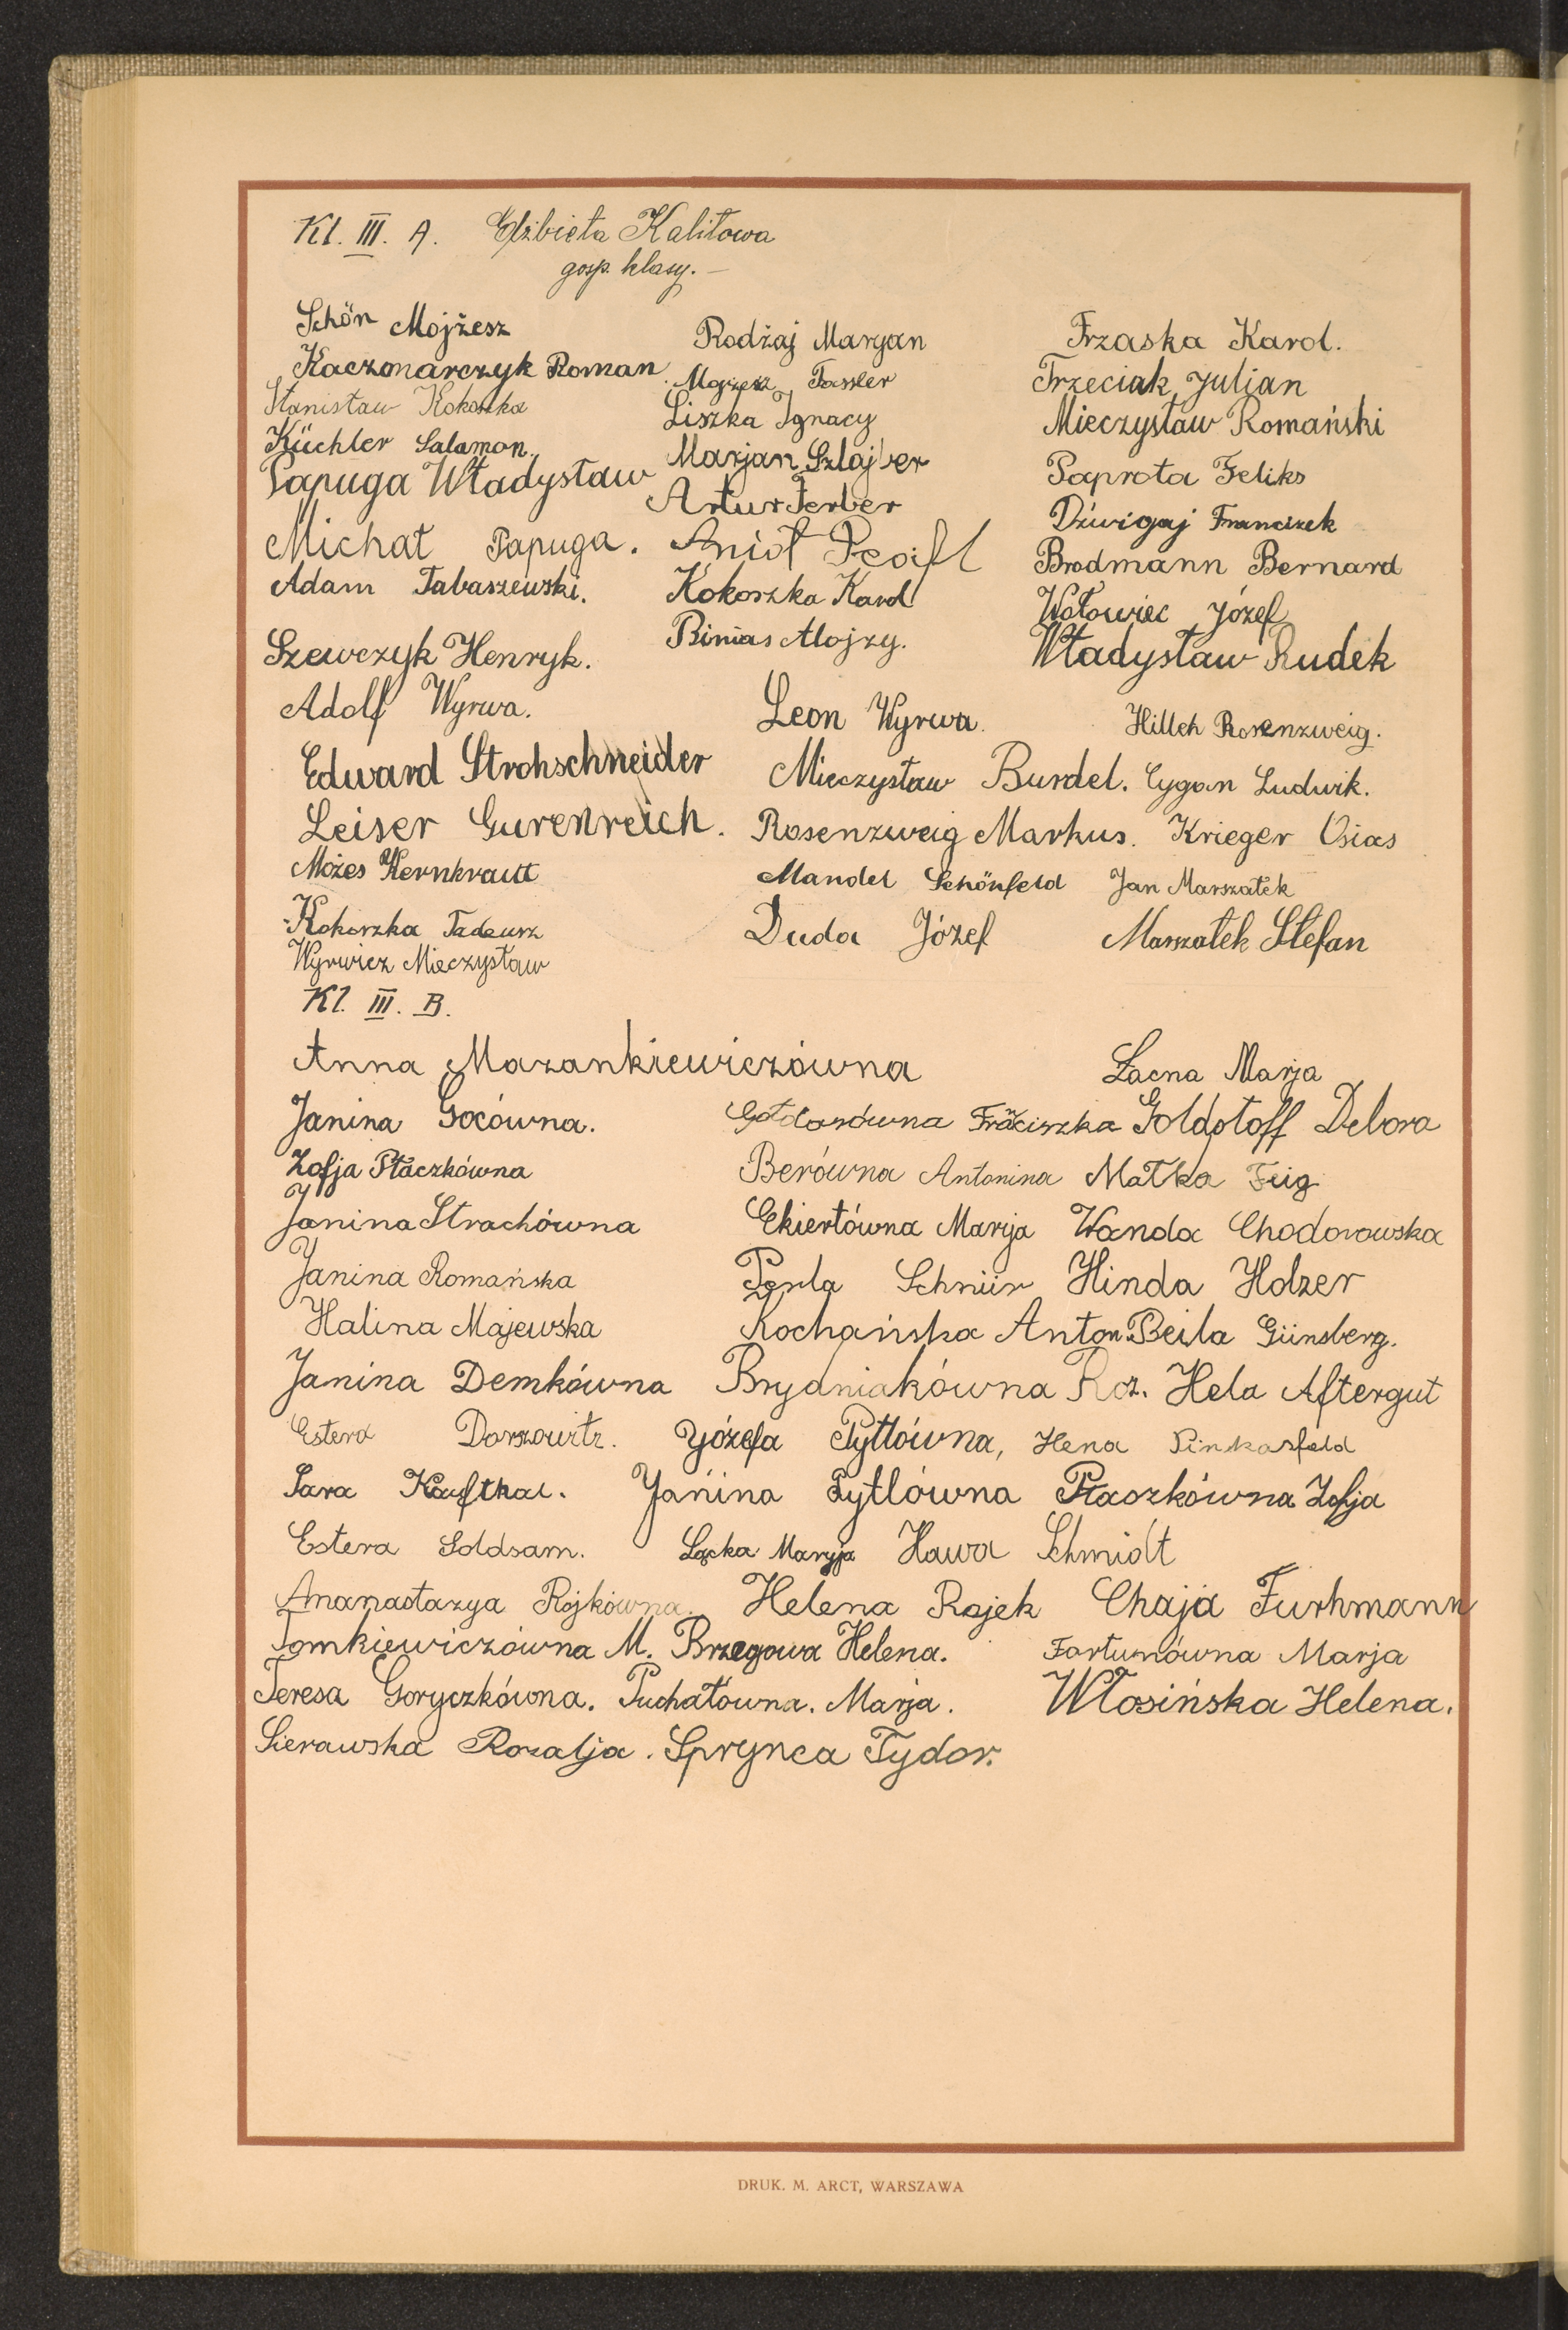 Kl. III. A. Elżbieta Kalitowa
gosp. klasy. —
Schön Mojżesz Rodżaj Maryan Trzaska Karol.
Kaczmarczyk Roman Mojżesz Fassler Trzeciak Juljan
Stanisław Kokoszka Liszka Ignacy Mieczysław Romański
Küchler Salamon. Marjan Szlajber Paprota Feliks
Papuga Władysław Artur Ferber Dźwigaj Franciszek
Michał Papuga. Anioł Brodmann Bernard
Adam Tabaszewski. Kokoszka Karol Wołowiec Józef
Szewczyk Henryk. Binias Alojzy. Władysław Rudek
Adolf Wyrwa. Leon Wyrwa. Hilleh Rosenzweig.
Edward Strohschneider Mieczysław Burdel. Cygan Ludwik.
Leiser Gurenreich. Rosenzweig Markus. Krieger Osias
Możes Kernkraut Mandel Schönfeld Jan Marszałek
Kokoszka Tadeusz Duda Józef Marszałek Stefan
Wyrwicz Mieczysław
Kl. III. B.
Anna Mazankiewiczówna Łacna Marja
Janina Gocówna. Frăciszka Goldstoff Debora
Zofja Ptaczkówna Berówna Antonina Matka Feig
Janina Strachówna Ekiertówna Marija Wanda Chodorowska
Janina Romańska Perla Schnür Hinda Holzer
Halina Majewska Kochańska Anton. Beila Günsberg.
Janina Demkówna Brydniakówna Roz. Hela Aftergut
Estera Józefa Pytlówna, Hena Pinkasfeld
Sara Kaufthal. Janina Pytlówna Ptaszkówna Zofja
Estera Goldsam. Łącka Maryja Hawa Schmidt
Ananastazya Rójkówna. Helena Rajek Chaja Furhmann
Tomkiewiczówna M. Brzegowa Helena. Fortunówna Marja
Teresa Goryczkówna. Puchałówna. Marja. Włosińska Helena.
Sierawska Rozalja. Sprynca Tydor.
DRUK. M. ARCT, WARSZAWA